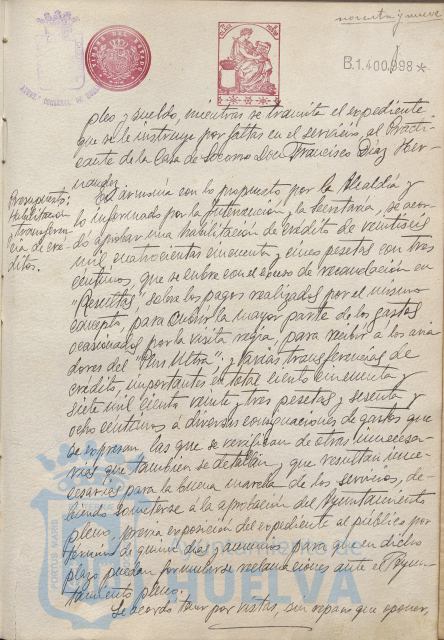 noventa y nueve
B.1.400,998*
pleo y sueldo, mientras se tramita el expediente
que se le instruye por faltas en el servicio, al Practi-
cante de la Casa de Socorro Don Francisco Diaz Her-
nandez
Presupuesto:
Habilitación
y transferen-
cia de cré-
ditos.
En armonia con lo propuesto por la Alcaldia y
lo informado por la Intervención y la Secretaria, se acor-
dó aprobar una habilitación de crédito de veintiseis
mil cuatrocientas cincuenta y cinco pesetas con tres
centimos, que se cubre con el exceso de recaudación en
"Resultas", sobre los pagos realizados por el mismo
concepto, para cubrir la mayor parte de los gastos
ocasionados por la visita regia, para recibir a los avia
dores del "Plus Ultra", y varias transferencias de
crédito, importantes en total ciento cincuenta y
siete mil ciento veinte y tres pesetas y sesenta y
ocho centimos á diversas consignaciones de gastos que
se expresan, las que se verifican de otras innecesa-
rias que tambien se detallan, y que resultan nece-
sarias para la buena marcha de los servicios, de-
biendo someterse á la aprobación del Ayuntamiento
pleno, previa exposición del expediente al público por
término de quince dias y anuncios para que en dicho
plazo puedan formularse reclamaciones ante el Ayun-
tamiento pleno.
Se acordó traer por vistas, sin reparo que oponer,
Ayuntamiento de
HUELVA
PORTUS MARIS